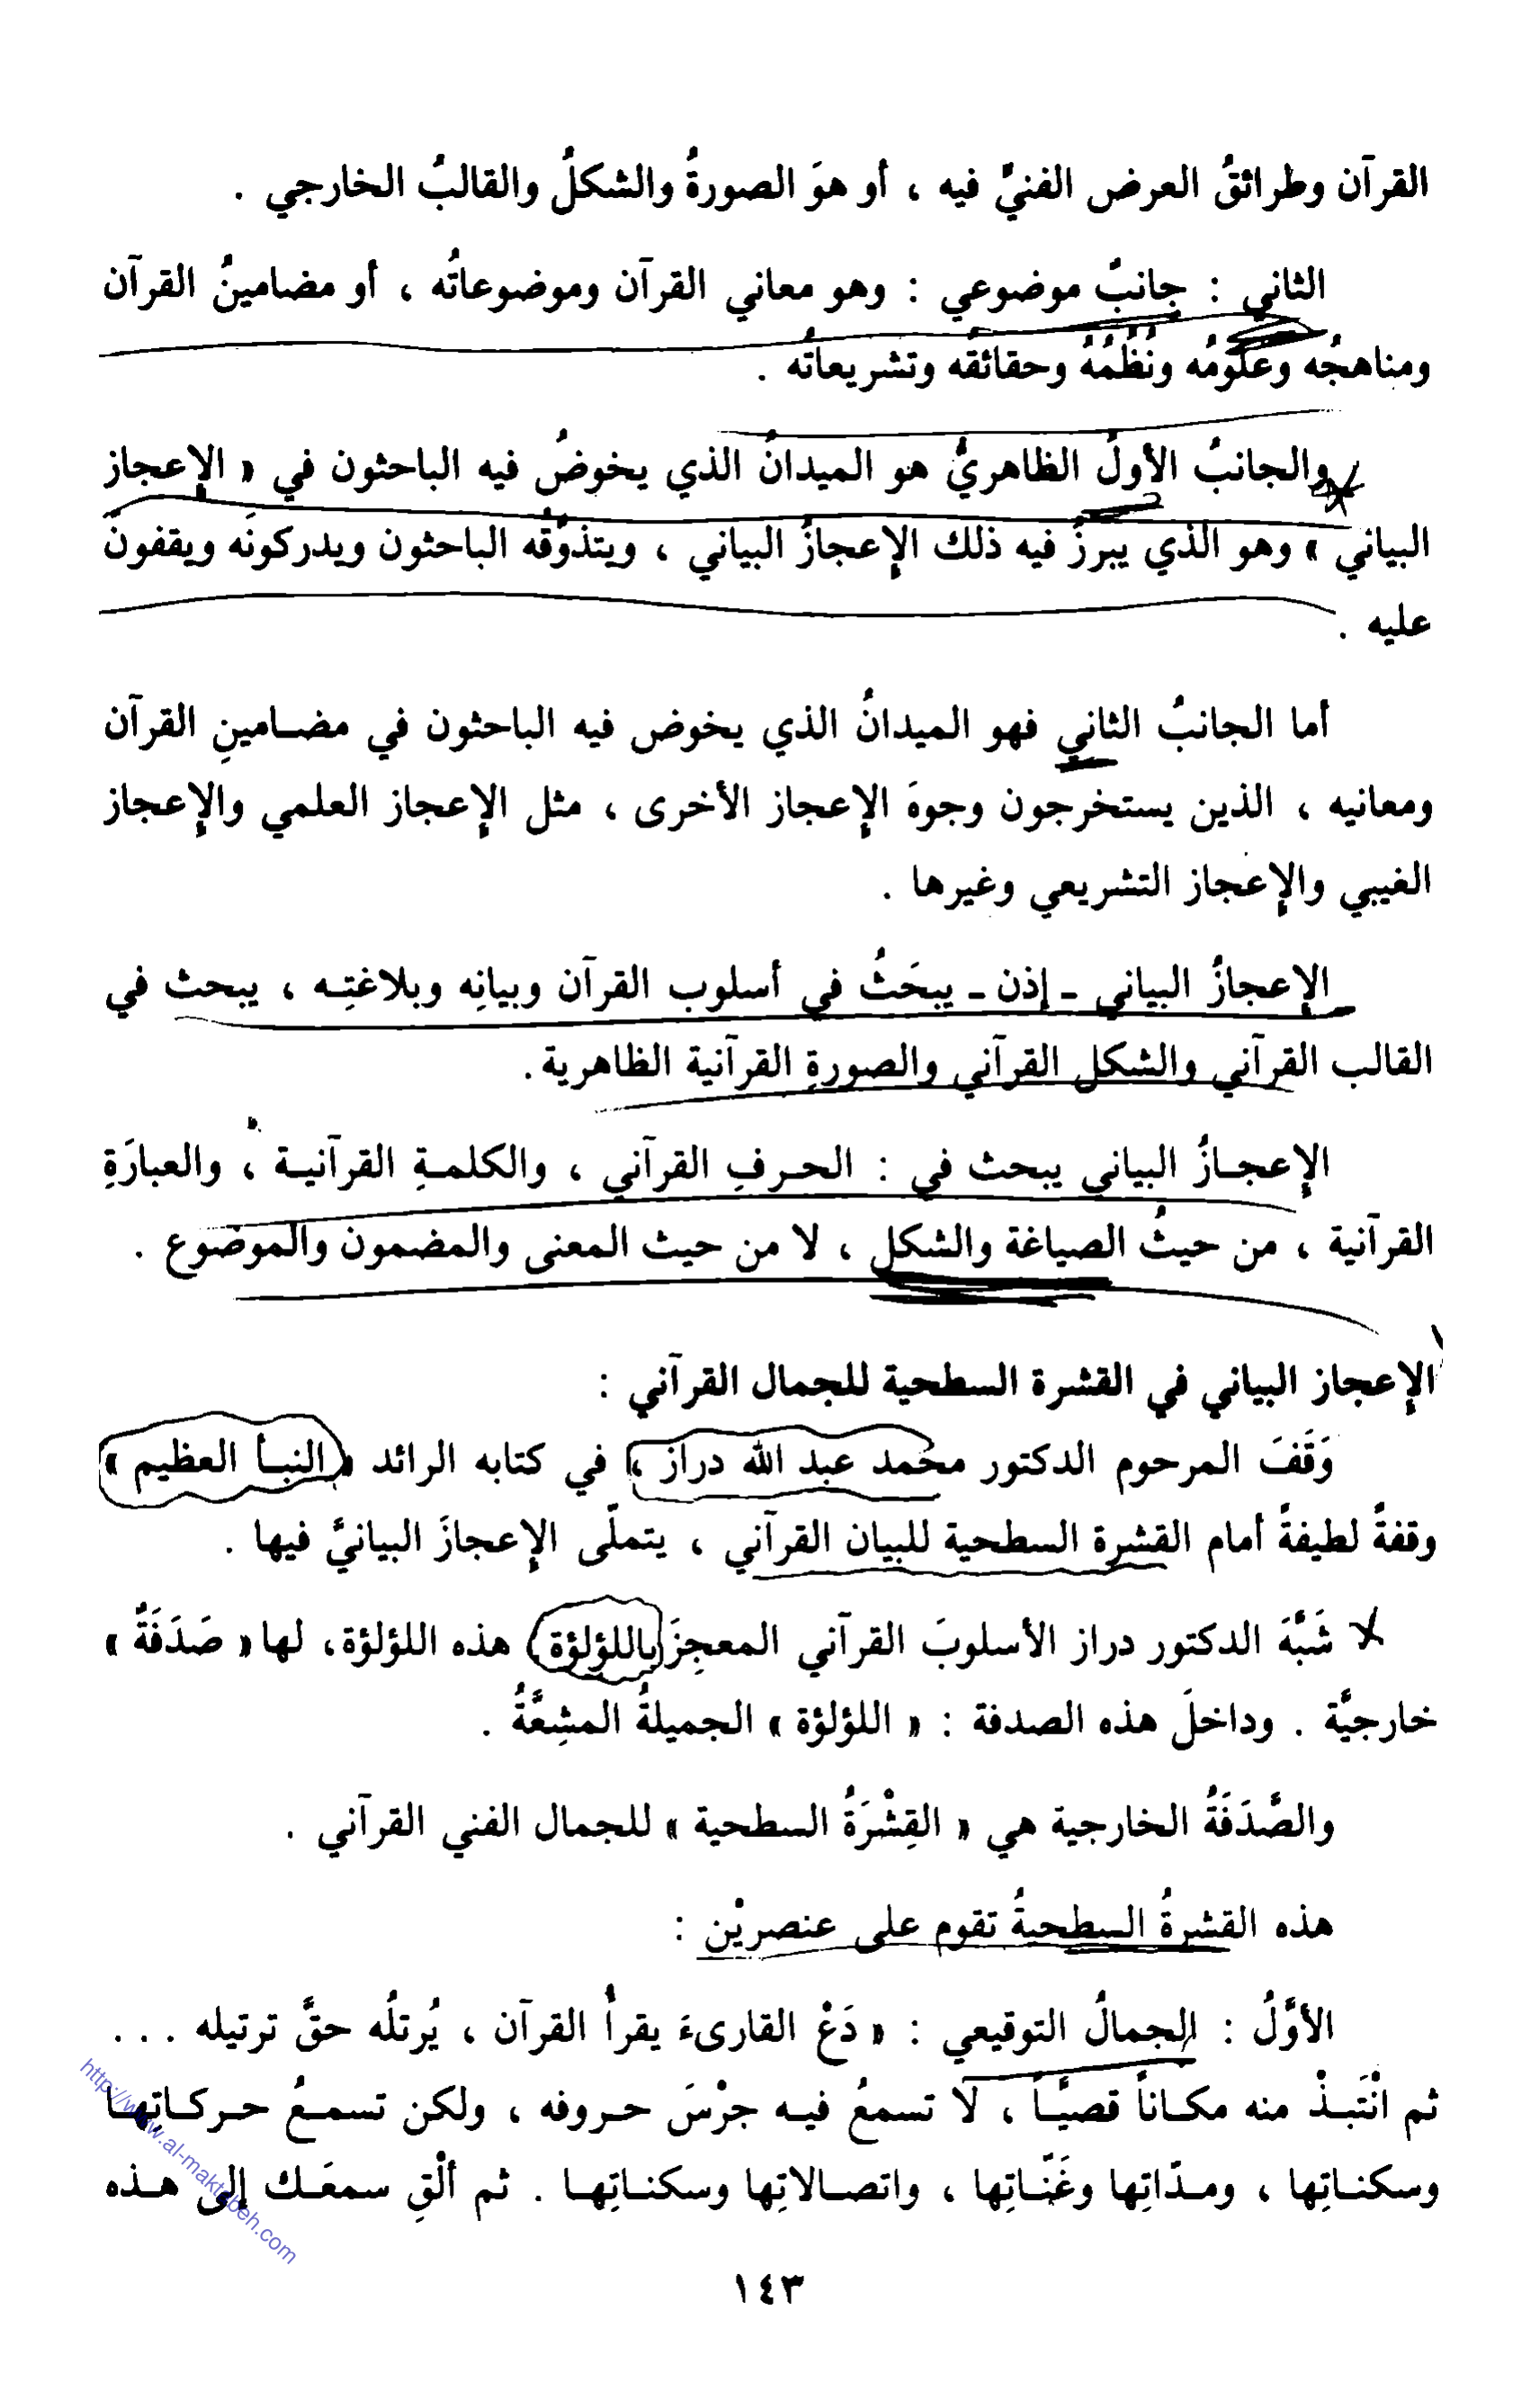 القرآن وطرائقُ العرض الفنيِّ فيه ، أو هوَ الصورةُ والشكلُ والقالبُ الخارجي .
الثاني : جانبٌ موضوعي : وهو معاني القرآن وموضوعاتُه ، أو مضامينُ القرآن
ومناهجُه وعلومُه ونُظُمُهُ وحقائقُه وتشريعاتُه .
والجانبُ الأولُ الظاهريُّ هو الميدانُ الذي يخوضُ فيه الباحثون في « الإعجاز
البياني » وهو الذي يبرزُ فيه ذلك الإعجازُ البياني ، ويتذوَّقُه الباحثون ويدركونَه ويقفونَ
عليه .
أما الجانبُ الثاني فهو الميدانُ الذي يخوض فيه الباحثون في مضامينِ القرآن
ومعانيه ، الذين يستخرجون وجوهَ الإعجاز الأخرى ، مثل الإعجاز العلمي والإعجاز
الغيبي والإعجاز التشريعي وغيرها .
الإعجازُ البياني - إذن - يبحَثُ في أسلوب القرآن وبيانِه وبلاغتِه ، يبحث في
القالب القرآني والشكل القرآني والصورةِ القرآنية الظاهرية .
الإعجازُ البياني يبحث في : الحرفِ القرآني ، والكلمةِ القرآنية ، والعبارَةِ
القرآنية ، من حيثُ الصياغة والشكل ، لا من حيث المعنى والمضمون والموضوع .
الإعجاز البياني في القشرة السطحية للجمال القرآني :
وَقَفَ المرحوم الدكتور محمد عبد الله دراز ، في كتابه الرائد « النبأ العظيم »
وقفةً لطيفةً أمام القشرة السطحية للبيان القرآني ، يتملّى الإعجازَ البيانيَّ فيها .
شَبَّهَ الدكتور دراز الأسلوبَ القرآني المعجِزَ باللؤلؤة ، هذه اللؤلؤة، لها « صَدَفَةٌ »
خارجيَّة . وداخلَ هذه الصدفة : « اللؤلؤة » الجميلةُ المشِعَّةُ .
والصَّدَفَةُ الخارجية هي « القِشْرَةُ السطحية » للجمال الفني القرآني .
هذه القشرةُ السطحيةُ تقوم على عنصريْن :
الأوَّلُ : الجمالُ التوقيعي : « دَعْ القارىءَ يقرأُ القرآن ، يُرتلُه حقَّ ترتيله . . .
ثم انْتَبِذْ منه مكاناً قصيَّاً ، لا تسمعُ فيه جرْسَ حروفه ، ولكن تسمعُ حركاتِها
وسكناتِها ، ومدّاتِها وغَنّاتِها ، واتصالاتِها وسكناتِها . ثم ألْقِ سمعَك إلى هذه
١٤٣
http://www.al-maktabeh.com